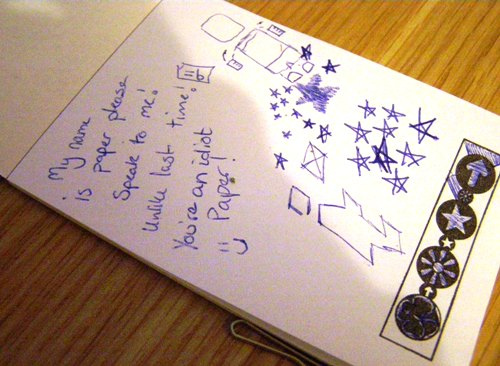 My name
is paper please
Speak to me!
Unlike last time!
You're an idiot
Paper!